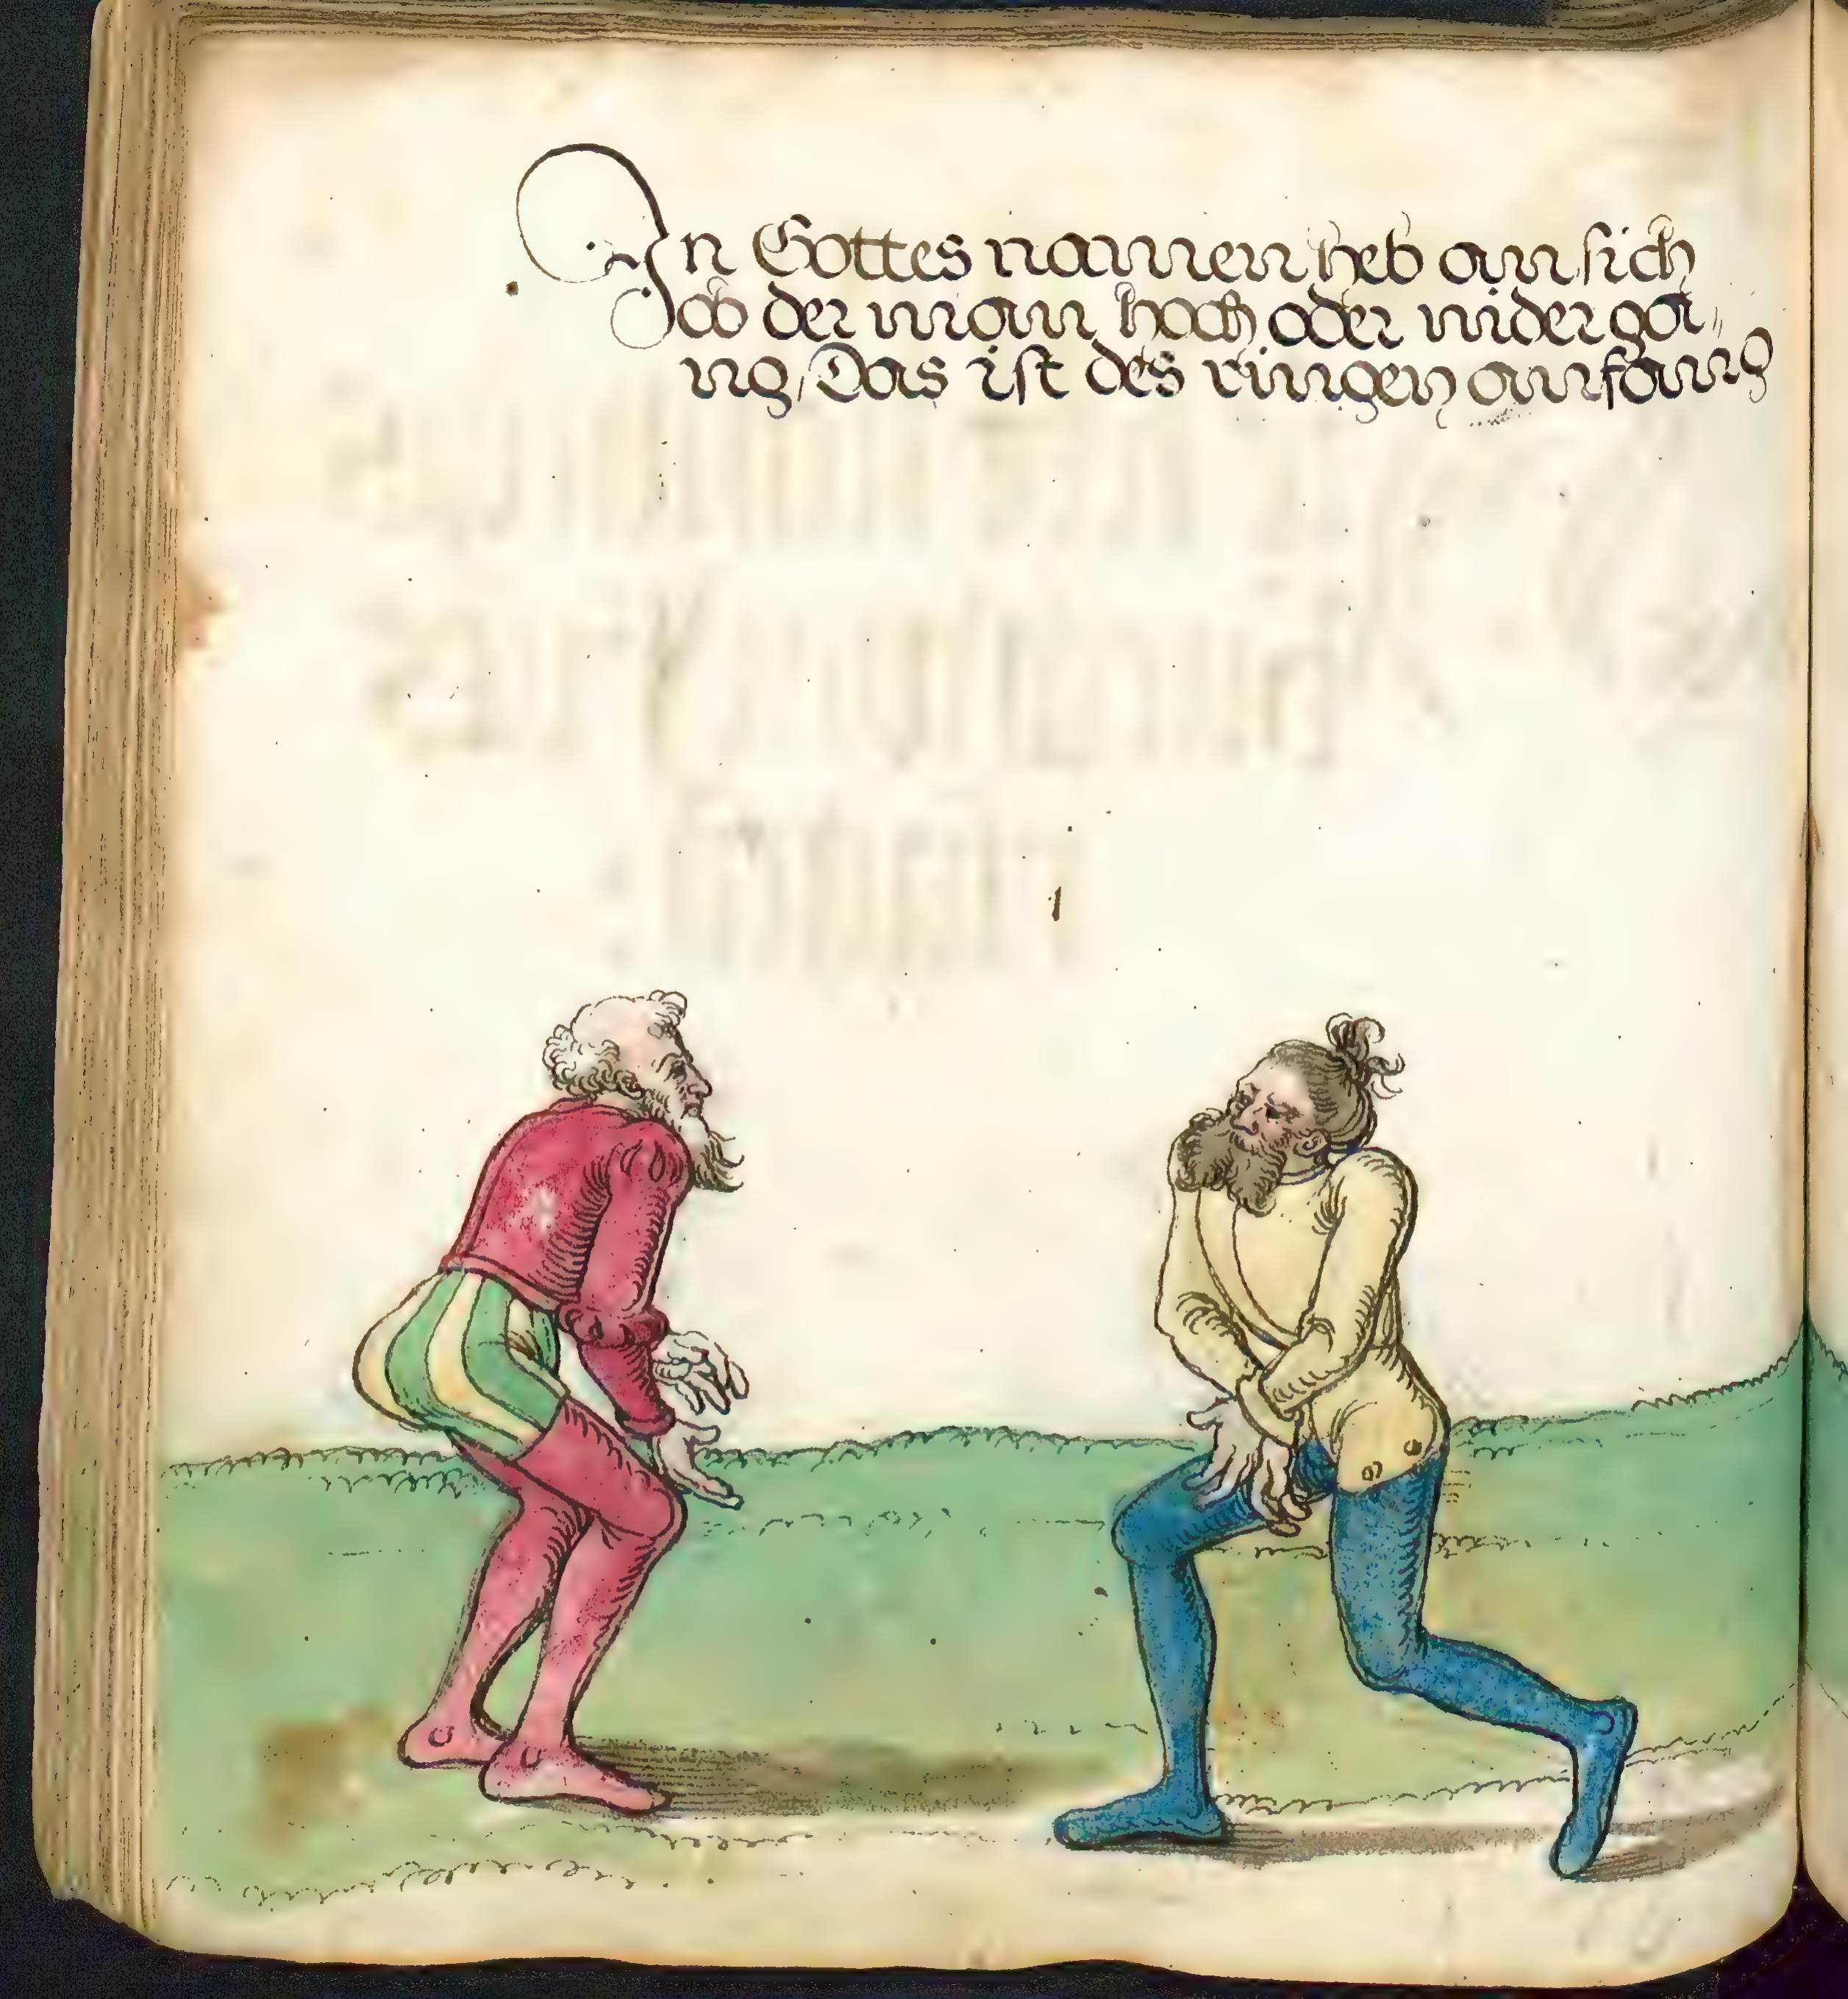 In Gottes namen heb an sich
ob der man hoch oder nider ga,,
ng/ Das ist des ringen anfang
1